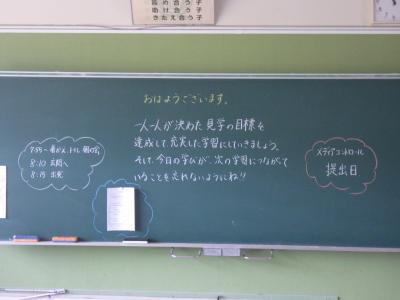 認め合う子
助け合う子
きたえ合う子
おはようございます。
一人一人が決めた見学の目標を
達成して充実した学習にしていきましょう。
そして、今日の学びが、次の学習につながって
いることを忘れないようにね!!
8:10 玄関へ
8:15 出発
メディアコントロール
提出日